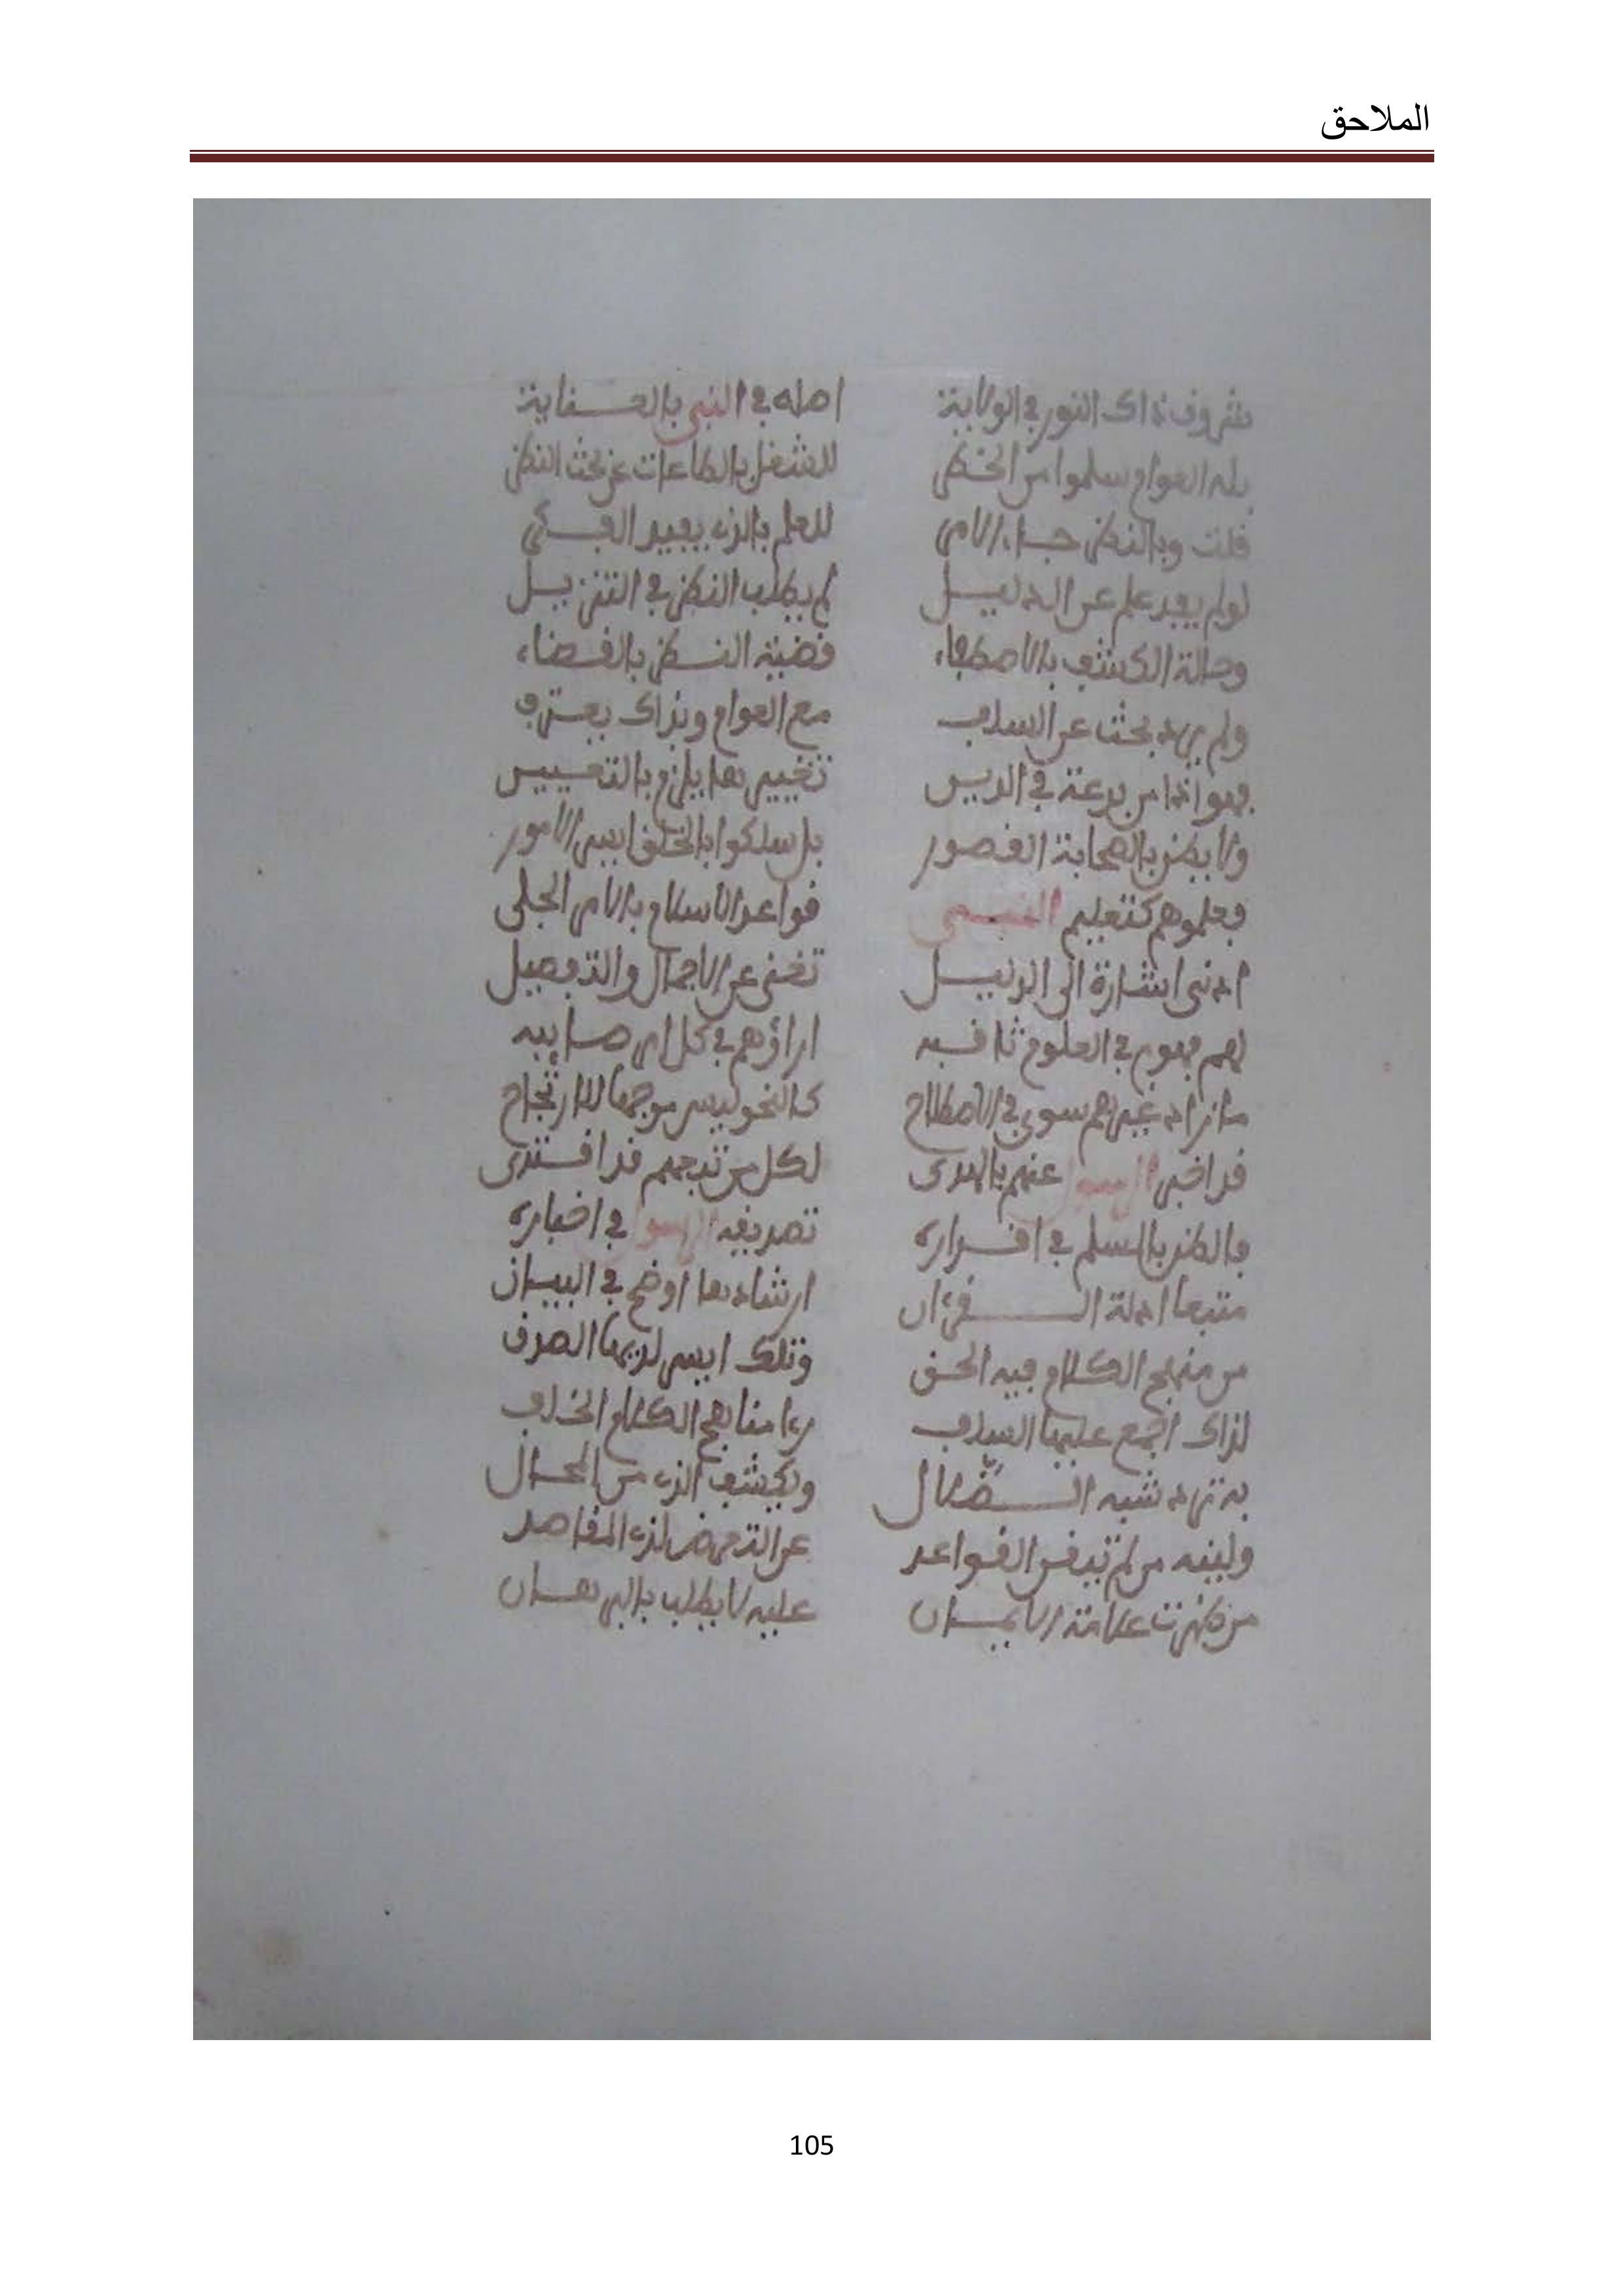 الملاحق
شروق ذاك النور في الولاية اصله في النبي بالعناية
بله العوام سلموا من الخطر للشغل بالطاعات عن بحث النظر
قلت وبالنظر جاء الامر للعلم بالذي يفيد الفكر
لو لم يفد علم عن الدليل لم يطلب النظر في التنزيل
وحالة الكشف بالاصطفاء قضية النظر بالقضاء
ولم يرد بحث عن السلف مع العوام وبذاك يعترف
فهو اذا من بدعة في الدين تغيير ما يلزم بالتعيين
ولا يظن بالصحابة القصور بل سلكوا بالخلق ايسر الامور
فعلموهم كتعليم النبي قواعد الاسلام بالامر الجلي
ادنى اشارة الى الدليل تغني عن الاجمال والتفصيل
لهم فهوم في العلوم ثاقبه اراؤهم في كل امر صايبه
ما زاد غيرهم سوى في الاصطلاح كالنحو ليس موجبا للارتجاح
قد اخبر الرسول عنهم بالهدى لكل من تبعهم قد اقتدى
فالظن بالمسلم في اقراره تصديقه الرسول في اخباره
متبعا ادلة القرءان ارشاد ما اوضح في البيان
من منهج الكلام فيه الحق وتلك ايسر لديها الصدق
لذاك اجمع عليها السلف رءا مناهج الكلام الخلف
به ترد شبه الضلال وتكشف الذي من المحال
ولينته من لم تتقن القواعد عن التعرض لذي المقاصد
من ظهرت علامة الايمان عليه لا يطلب بالبرهان
105